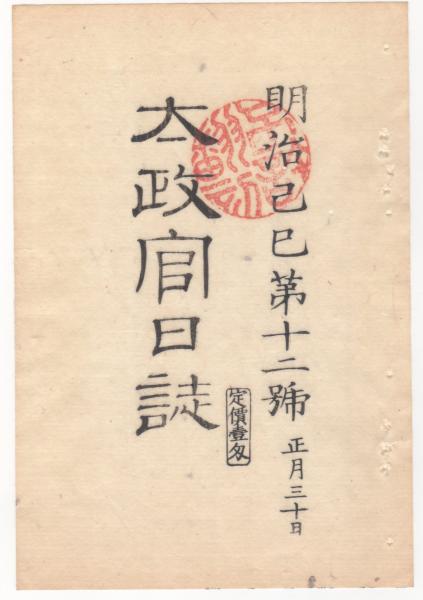 明治己巳第十二號 正月三十日
太政官日誌
定價壹匁